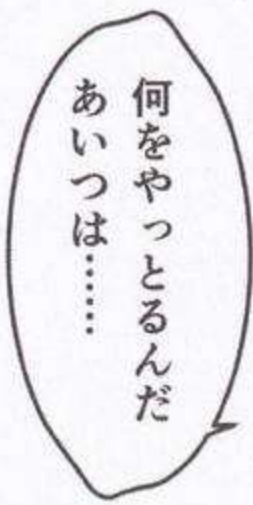 何をやっとるんだ
あいつは……